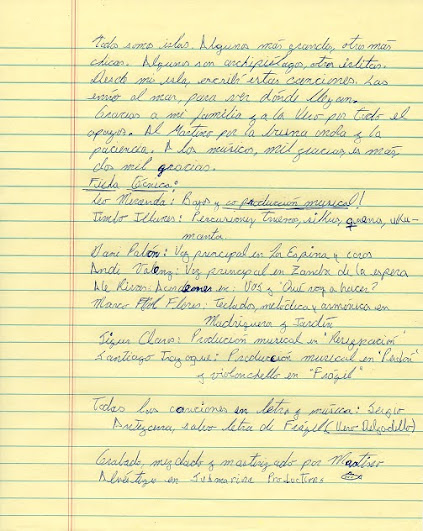 Todos somos islas. Algunos más grandes, otros más
chicos. Algunos son archipiélagos, otros isletas.
Desde mi isla, escribí estas canciones. Las
envío al mar, para ver dónde llegan.
Gracias a mi familia y a la Vero por todo el
apoyo. Al Martino por la buena onda y la
paciencia. A los músicos, mil gracias es más
dos mil gracias.
Ficha técnica:
Leo Miranda: Bajo y co producción musical!
Jimbo Illanes: Percusiones, truenos, sikus, quena,
manta.
Dani Pabón: Voz principal en La Espina y coros
Ande Valenz: Voz principal en Zamba de la espera
Ale Rivas: Acordeones en: Vos y "Qué voy a hacer?
Marco Flores: Teclados, melódica y armónica en
Madriguera y Jardín
Claros: Producion musical en "Resignación"
Santiago: Producción musical en "Perdón"
y violonchello en "Frágil"
Todas las canciones en letra y música: Sergio
salvo letra de Frágil (Vero Delgadillo)
Grabado, mezclado y masterizado por Martino
en Submarina Productions